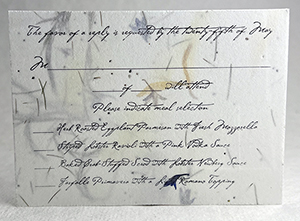 The favor of a reply is requested by the twenty fifth of May
M
of will attend
Please indicate meal selection
Herb Roasted Eggplant Parmesan with Fresh Mozzarella
Lobster Ravioli with a Pink Vodka Sauce
Baked Stuffed with Lobster Newburg Sauce
Primavera with a Romano Topping